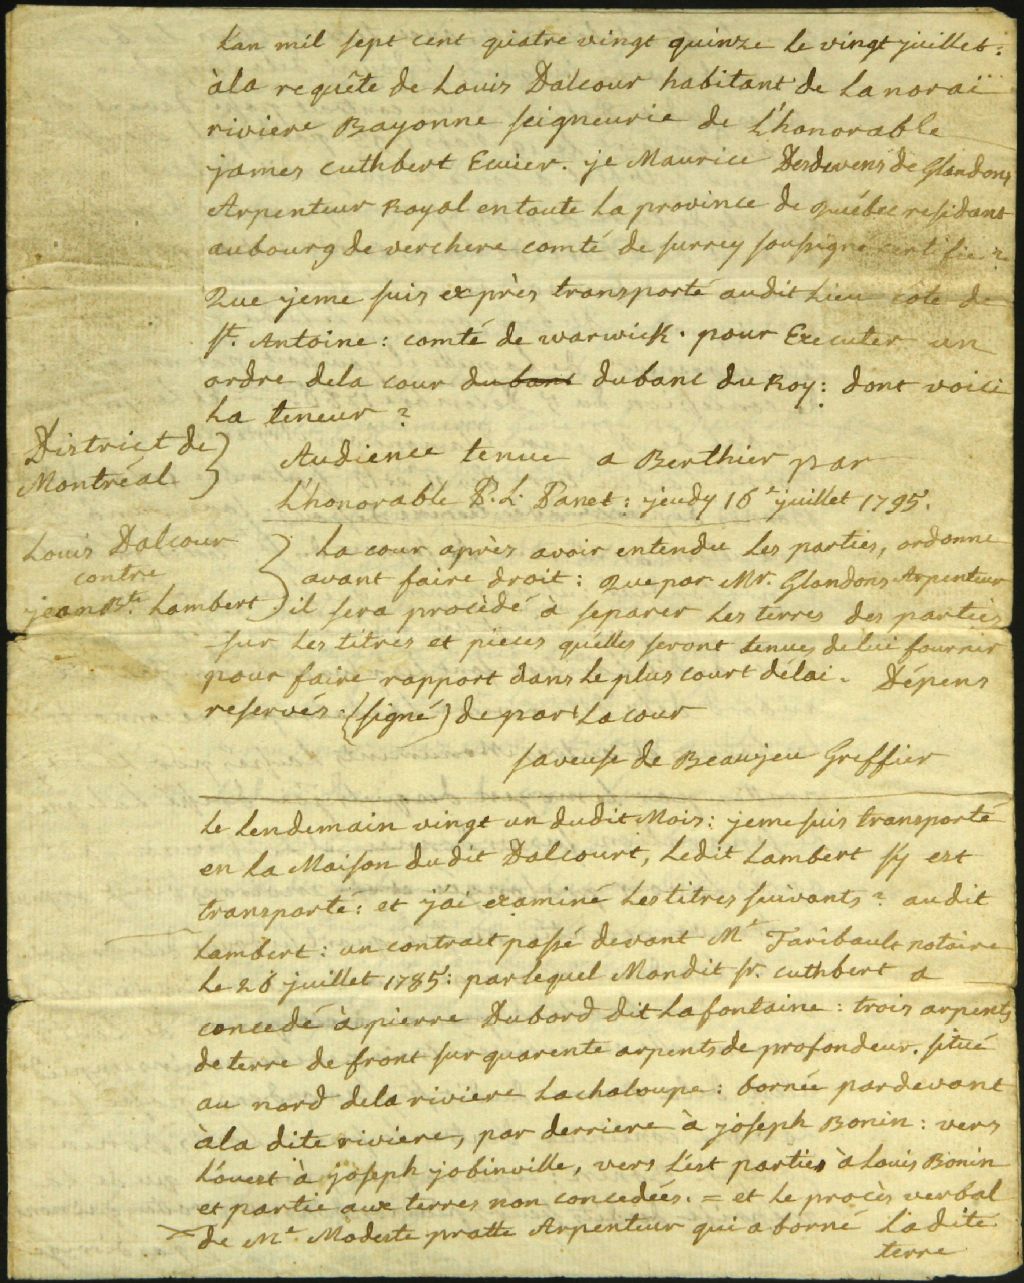 L'an mil sept cent quatre vingt quinze le vingt juillet:
àla requête de Louis Dalcour habitant de Lanoraï
riviere Bayonne seigneurie de L'honorable
james cuthbert Ecuier. je Maurice Desdevens de Glandons
Arpenteur Royal en toute La province de québec residant
au bourg de verchere comté de surrey soussigné certifie?
Que jeme suis exprès transporté audit Lieu cote de
st. Antoine: comté de warwick. pour Executer un
ordre dela cour du banc dubanc du Roy: dont voici
La teneur?
District de
Montréal
Audience tenue a Berthier par
L'honorable P. L. Panet: jeudy 16e juillet 1795.
Louis Dalcour
contre
jean Bte. Lambert
La cour après avoir entendu Les parties, ordonne
avant faire droit: que par Mr. Glandons Arpenteur
il sera procèdé à separer Les terres des parties
sur Les titres et pieces qu'elles seront tenues delui fournir
pour faire rapport dans Le plus court délai. Dépens
reservés. (signé) de par La cour
saveuse de Beaujeu Greffier
Le Lendemain vingt un dudit Mois: jeme suis transporté
en La Maison dudit Dalcourt, Ledit Lambert sy est
transporte: et j'ai examiné Les titres suivants? audit
Lambert: un contract passé devant Mt Faribault notaire
Le 26 juillet 1785: par lequel Mondit sr. cuthbert a
concedé à pierre Dubord dit Lafontaine: trois arpents
de terre de front sur quarente arpents de profondeur. situé
au nord dela riviere Lachaloupe: bornée pardevant
àla dite riviere, par derriere à joseph Bonin: vers
L'ouest à joseph jobinville, vers L'est partie à Louis Bonin
et partie aux terres non concedées. = et Le procès verbal
de Mt Modeste pratte Arpenteur qui a borné Ladite
terre